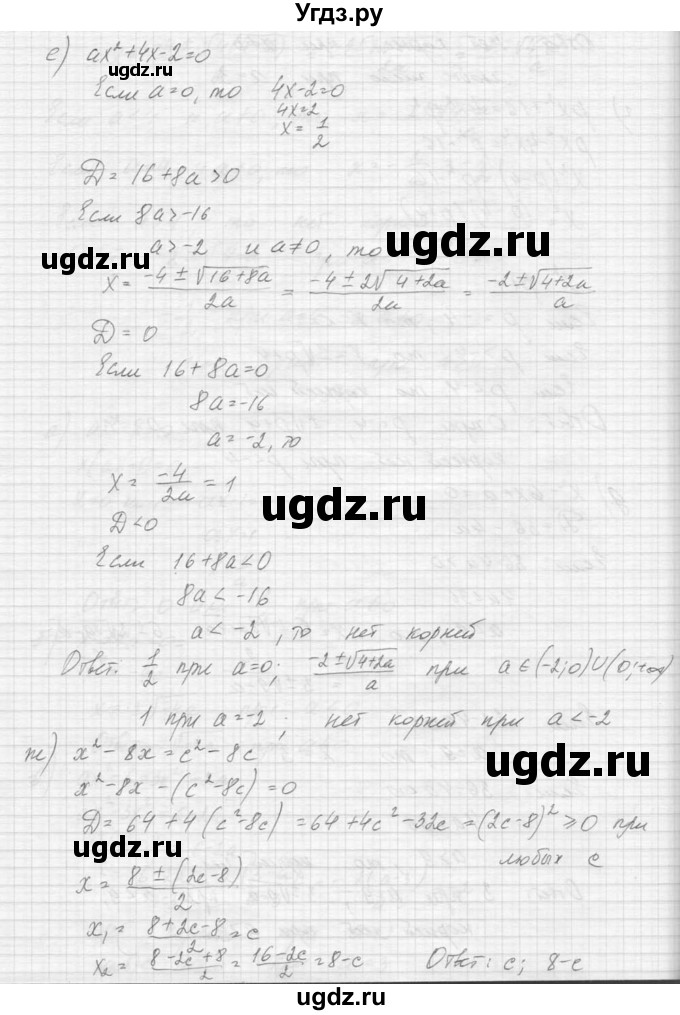 Угдз.ру
е) ax² + 4x - 2 = 0
ugdz.ru
Если a = 0, то 4x - 2 = 0
ugdz.ru
4x = 2
x = 1/2
D = 16 + 8a > 0
Если 8a > -16
ugdz.ru
a > -2 и a ≠ 0, то
ugdz.ru
x = (-4 ± √(16 + 8a))/2a = (-4 ± 2√(4 + 2a))/2a = (-2 ± √(4 + 2a))/a
D = 0
Если 16 + 8a = 0
8a = -16
a = -2, то
x = -4/2a = 1
ugdz.ru
D < 0
Если 16 + 8a < 0
8a < -16
a < -2, то нет корней
Ответ: 1/2 при a = 0; (-2 ± √(4 + 2a))/a при a ∈ (-2; 0) ∪ (0; +∞)
1 при a = -2; нет корней при a < -2
ж) x² - 8x = c² - 8c
ugdz.ru
x² - 8x - (c² - 8c) = 0
D = 64 + 4(c² - 8c) = 64 + 4c² - 32c = (2c - 8)² ≥ 0 при
любых c
ugdz.ru
x = (8 ± (2c - 8))/2
x₁ = (8 + 2c - 8)/2 = c
x₂ = (8 - 2c + 8)/2 = (16 - 2c)/2 = 8 - c Ответ: c; 8 - c
ugdz.ru